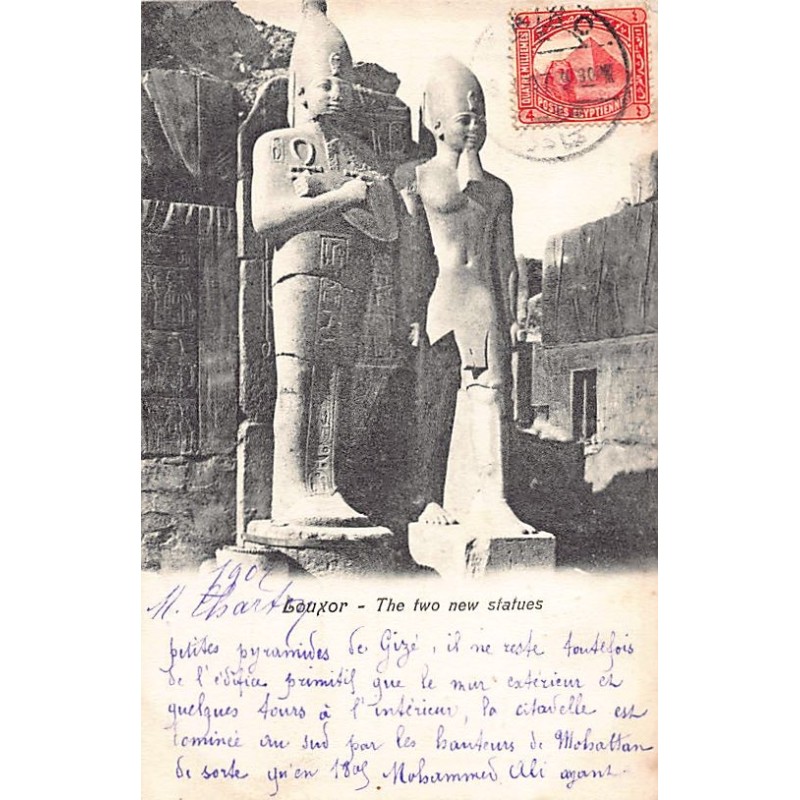 4 4
QUATRE MILLIÈMES
POSTES EGYPTIENNES
4
Louxor - The two new statues
petites pyramides de Gizé, il ne reste toutefois
de l'édifice primitif que le mur extérieur et
quelques tours à l'intérieur, la citadelle est
dominée au sud par les hauteurs de Mohattan
de sorte qu'en 1805 Mohammed Ali ayant